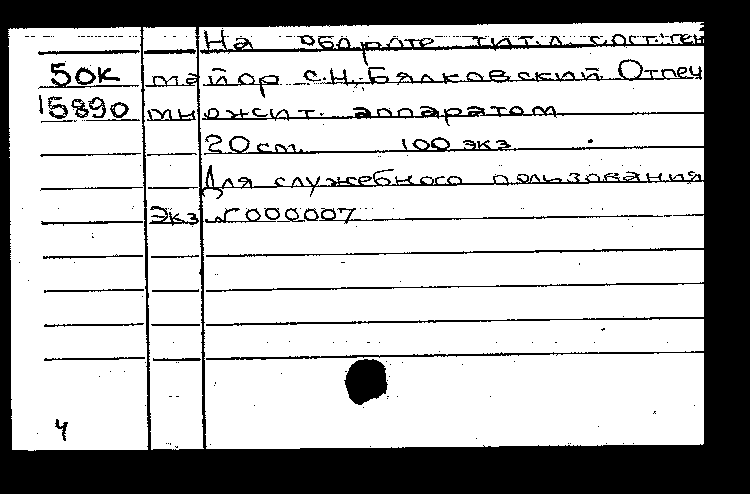 На обороте тит.л. сост.: ген
50К майор С.Н. Бялковский Отпеч
15890 множит. аппаратом
20 см. 100 экз.
Для служебного пользования
Экз № 000007
4